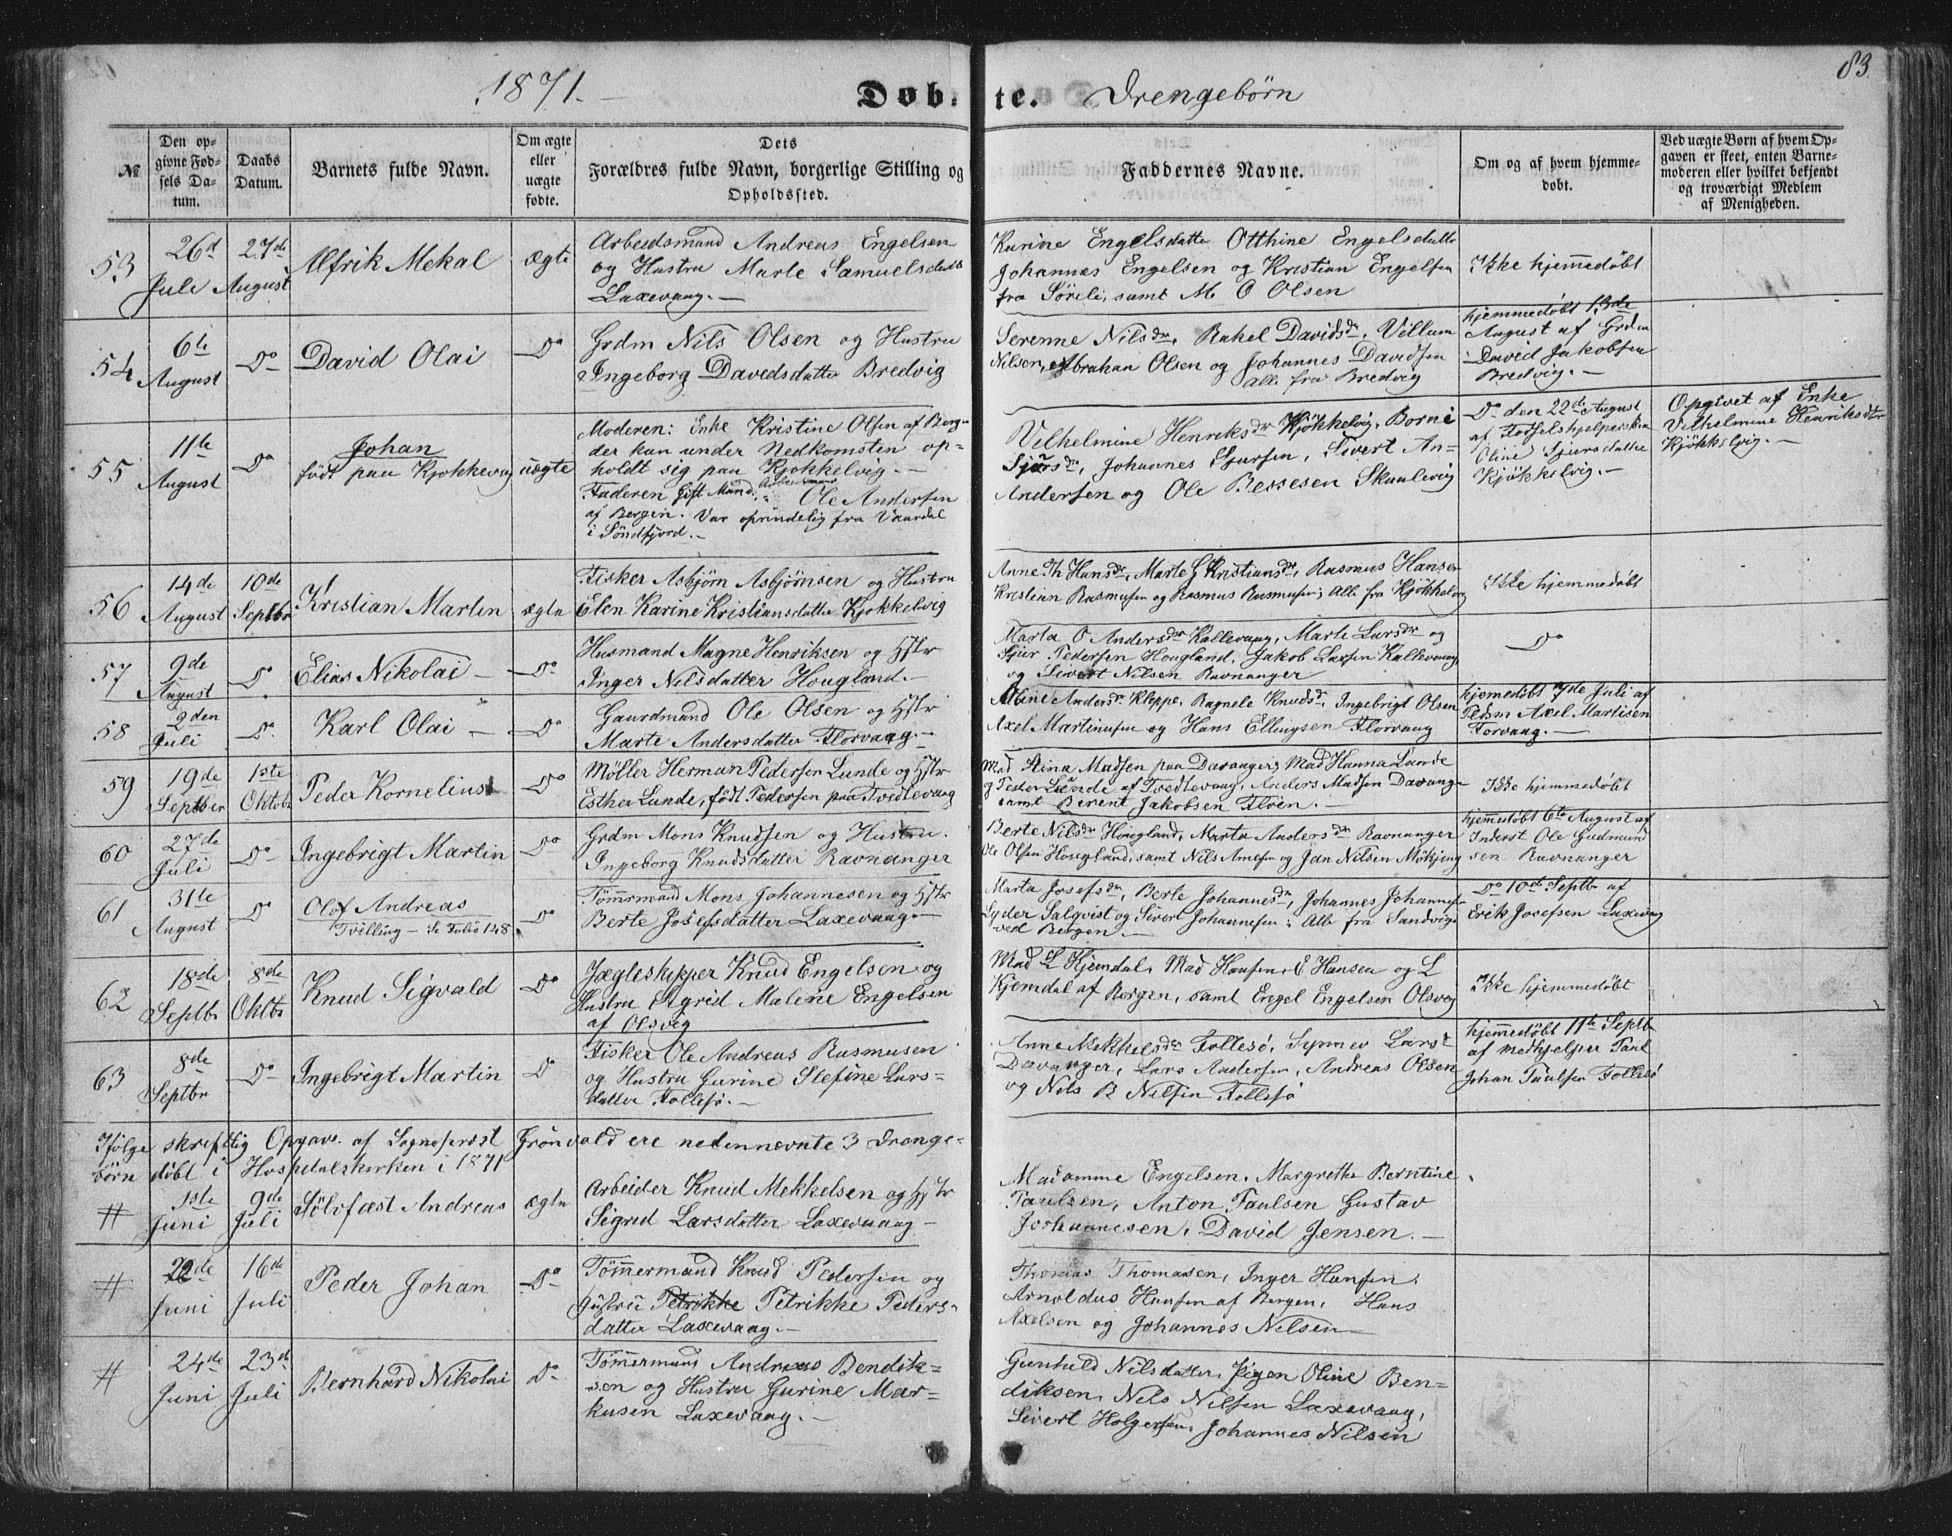 1871.
Døb-te. Drengebørn
83.
№
Den opgivne Fødsels Datum.
Daabs Datum.
Barnets fulde Navn.
Om ægte eller uægte fødte.
Dets Forældres fulde Navn, borgerlige Stilling og Opholdssted.
Faddernes Navne.
Om og af hvem hjemmedøbt.
Ved uægte Børn af hvem Opgaven er skeet, enten Barnemoderen eller hvilket bekjendt og troværdigt Medlem af Menigheden.
53
26d Juli
27de August
Alfrik Mekal
ægte
Arbeidsmand Andreas Engelsen
og Hustru Marte Samuelsdatt
Laxevaag.
Karine Engelsdatter Otthine Engelsdatte
Johannes Engelsen og Kristian Engelsen
fra Sørele, samt M O Olsen
Ikke hjemmedøbt
54
6te August
Do
David Olai
Do
Grdm Nils Olsen og Hustru
Ingeborg Davedsdatter Bredvig
Serenne Nilsdr, Rakel Davidsdr, Villum
Nilsen, Abrahan Olsen og Johannes Davidsen
alle fra Bredvig
hjemmedøbt 13de
August af Grdm
David Jakobsen
Bredvig.
55
11te August
Do
Johan
født paa Kjøkkevag
uægte
Moderen: Enke Kristine Olsen af Berge
der kun under Nedkomsten op-
holdt sig paa Kjøkkelvig.
Faderen Gift Mand, Arbeidsmand Ole Andersen
af Bergen. Var oprindelig fra Vaardal
i Søndfjord.
Vilhelmine Henriksdr Kjøkkelvig, Borni
Sjursdr, Johannes Sjursen, Sivert An-
Andersen og Ole Bessesen Skaalevig
Do den 22de August
af Fødselshjelperska
Oline Sjursdatter
Kjøkkelvig.
Opgivet af Enke
Vilhelmine Henriksdtr
Kjøkkelvig.
56
14de August
10de Septbr
Kristian Martin
ægte
Fisker Asbjørn Asbjørnsen og Hustru
Elen Karine Kristiansdatter Kjøkkelvig
Anne Th Hansdr, Marte G Kristiansdr, Rasmus Hansen
Kristian Rasmusen og Rasmus Rasmusen; Alle fra Kjøkkelvig
Ikke hjemmedøbt
57
9de August
Do
Elias Nikolai
Do
Husmand Magne Henriksen og Hstr
Inger Nilsdatter Hougland.
Marta O Andersdr Kallevaag, Marte Larsdr og
Sjur Pedersen Hougland, Jakob Larsen Kallevaag,
og Sivert Nilsen Ravnanger
Do
58
2den Juli
Do
Karl Olai
Do
Gaardmand Ole Olsen og Hstr
Marte Andersdatter Florvaag.
Andersdr Kleppe, Ragnele Knudsdr, Ingebrigt Olsen
Axel Martinusen og Hans Ellingsen Florvaag
hjemedøbt 7de Juli af
Axel Martisen
Florvaag.
59
19de Septber
1ste Oktobr
Peder Kornelius
Do
Møller Herman Pedersen Lunde og Hstr
Esther Lunde, født Pedersen paa Tvedtevaag
Mad Stina Madsen paa Davanger, Mad Hanna Lunde
og Peder Lunde af Tvedtevaag, Anders Madsen Davang
samt Berent Jakobsen Fløen.
Ikke hjemmedøbt
60
27de Juli
Do
Ingebrigt Martin
Do
Grdm Mons Knudsen og Hustru.
Ingeborg Knudsdatter Ravnanger
Berte Nilsdr Hougland, Marta Andersdr Ravnanger
Ole Olsen Hougland, samt Nils Arnesen og Jan Nilsen Møkjeng
hjemmedøbt 6te August af
Inderst Ole Gudmund
sen Ravnanger
61
31te August
Do
Olof Andreas
Tvilling - Se Folio 148
Do
Tømmrmand Mons Johannesen og Hstr
Berte Josefsdatter Laxevaag.
Marta Josefsdr, Berte Johannesdr, Johannes Johannesen
Lyder Salqvist og Sivert Johannesen; Alle fra Sandvigen
ved Bergen.
Do 10de Septbr af
Erik Josefsen Laxevaag
62
18de Septbr
8de Oktbr
Knud Sigvald
Do
Jægteskipper Knud Engelsen og
Hustru Sigrid Malene Engelsen
af Olsvig
Mad L Kjemdal, Mad Hansen, E Hansen og L
Kjemdal af Bergen, samt Engel Engelsen Olsvog
Ikke hjemmedøbt
63
8de Septbr
Do
Ingebrigt Martin
Do
Fisker Ole Andreas Rasmusen
og Hustru Gurine Stefine Lars-
datter Follesø.
Anne Mekkelsdr Follesø, Synnev Larsd
Davanger, Lars Andersen, Andreas Olsen
og Nils B Nilsen Follesø
hjemmedøbt 11te Septbr
af medhjelper Paul
Johan Paulsen Follesø
Ifølge skreftlig Opgave af Sogneprest Grønvold ere nedennevnte 3 Drenge-
børn døbt i Hospitalskirken i 1871
#
1ste Juni
9de Juli
Sølvfæst Andreas
ægte
Arbeider Knud Mekkelsen og Hstr
Sigrid Larsdatter Laxevaag
Madamme Engelsen, Margrethe Berntine
Paulsen, Anton Paulsen Gustav
Johannesen, David Jensen.
#
22de Juni
16de Juli
Peder Johan
Do
Tømmermand Knud Pedersen og
Hustru Petrikke Petrikke Peders-
datter Laxevaag.
Thomas Thomassen, Inger Hansen,
Arnoldus Hansen af Bergen, Hans
Axelsen og Johannes Nilsen
#
24de Juni
23de Juli
Bernhard Nikolai
Do
Tømmermand Andreas Bendik-
sen og Hustru Gurine Mar-
kusen Laxevaag.
Gunhild Nilsdatter, Pigen Oline Ben-
diksen, Nels Nilsen Laxevaag,
Sivert Holgersen, Johannes Nilsen